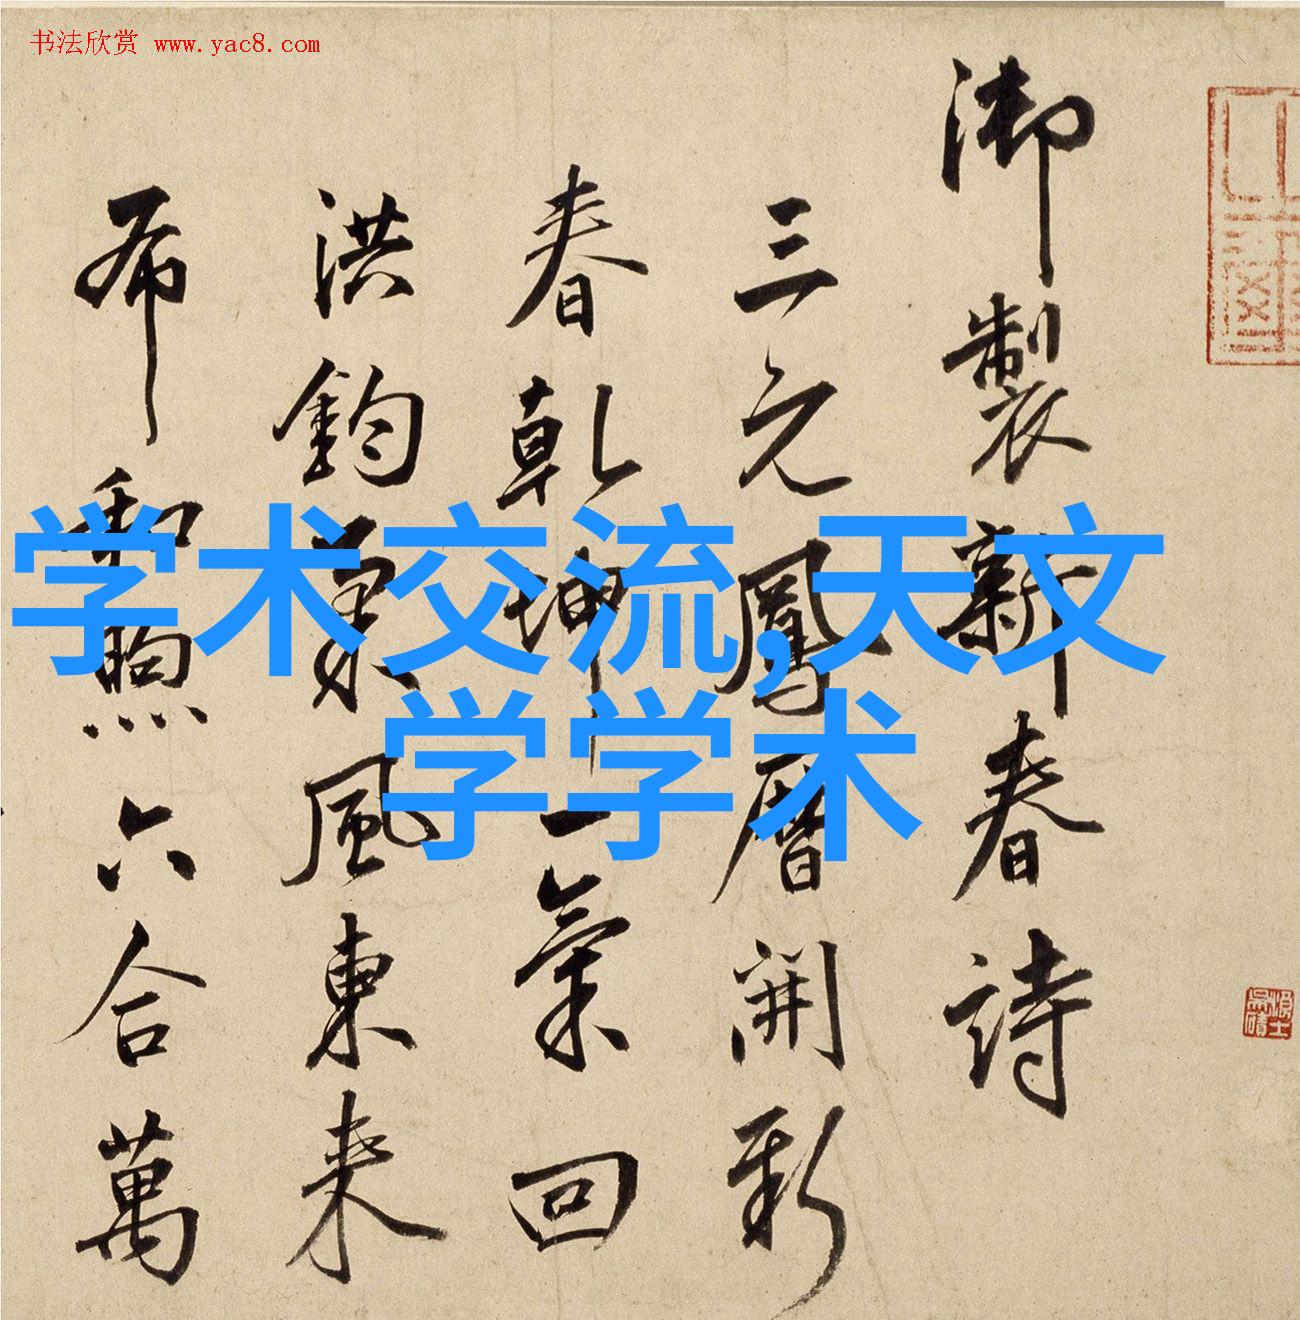 书法欣赏 www.yac8.com
御製新春詩
三元鳳曆開新
春乾坤一氣回
洪鈞氣風東来
布和煦六合萬
学术交流,天文
学学术